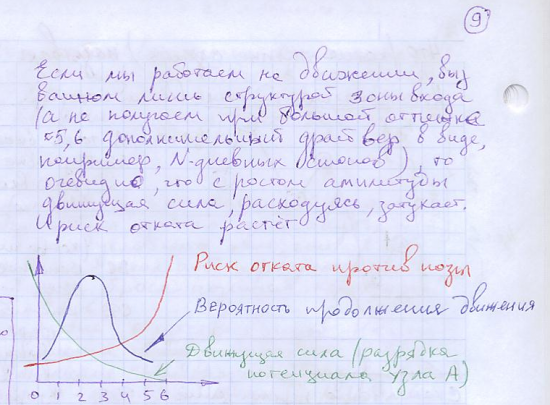 9
Если мы работаем на движении, выз
ванном лишь структурой зоны входа
(а не получаем при большой
5,6 дополнительный драйвер в виде,
например, N-дневных стопов), то
очевидно, что с ростом амплитуды
движущая сила, расходуясь, затухает.
И риск отката растёт
Риск отката против позы
Вероятность продолжения движения
Движущая сила (разрядка
потенциала узла А)
0 1 2 3 4 5 6